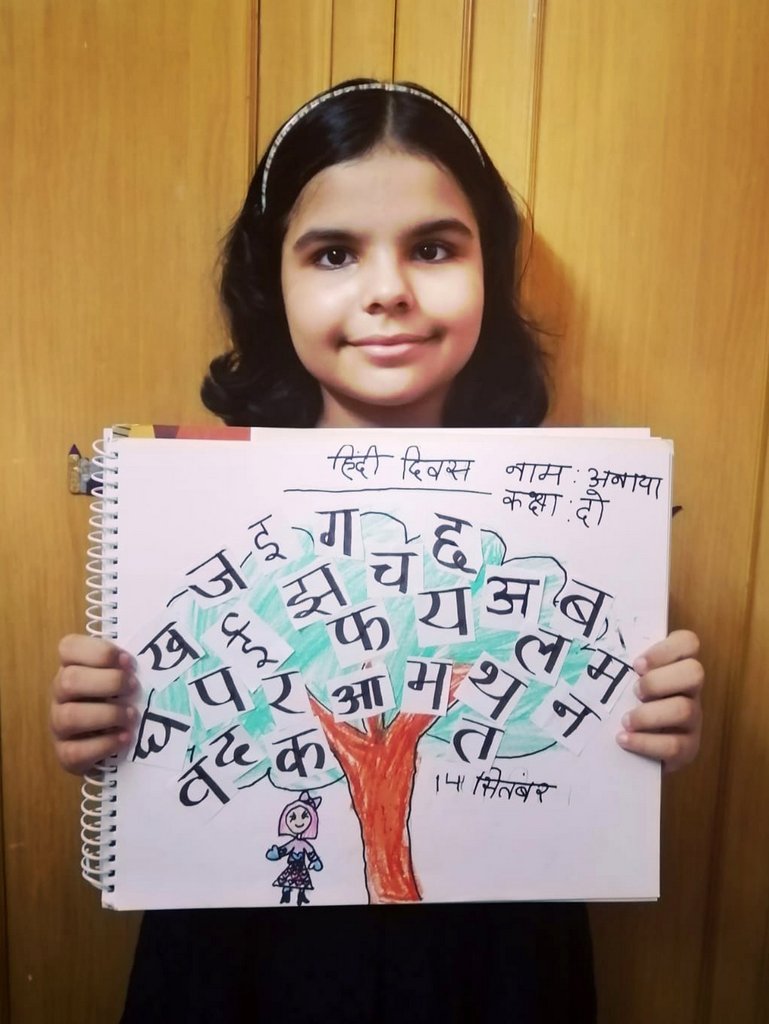 हिंदी दिवस
नाम : अनाया
कक्षा : दो
ज इ ग च छ
ख ई झ फ य अ ब
घ प र आ म थ ल म
व द क त न
14 सितंबर